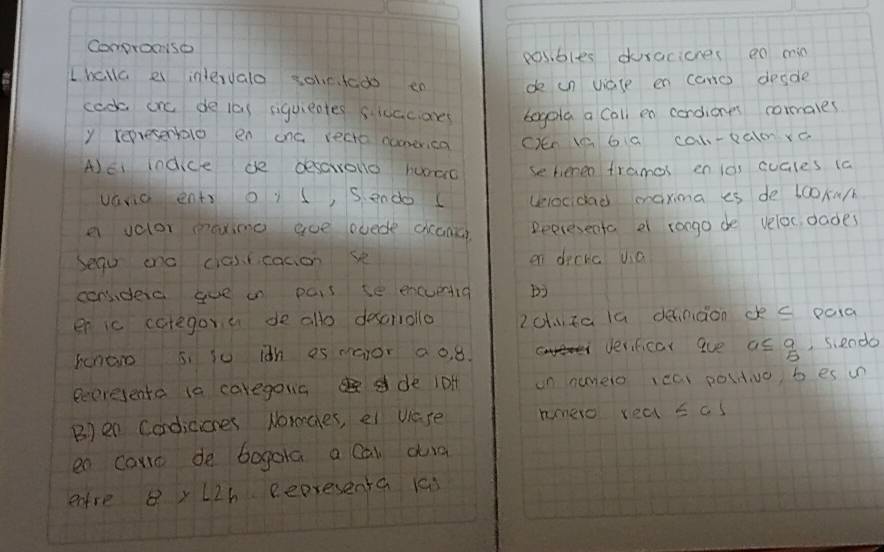 Compromiso
1 halla el intervalo solicitado en
cada una de las siguientes situaciones
y represéntalo en una recta numerica
A) El indice de desarrollo humano
varia entr 0 y 1, siendo 1
el valor maximo que puede alcanzar.
segu una clasificacion se
considera que un pais se encuentra
en la categoria de alto desarrollo
humano si su idh es mayor a 0,8.
Representa la categoria de IDH
B) en Condiciones Normales, el viaje
en carro de bogota a Cali dura
entre 8 y 12h Representa las
posibles duraciones en min
de un viaje en carro desde
bogota a Cali en condiones normales
C) En la bia cali-Palmira
se tienen tramos en los cuales la
velocidad maxima es de 100km/h
Representa el rango de velocidades
en dicha via
B)
2 utiliza la definicion de ≤ para
verificar que a≤ a/b, siendo
un numero real positivo, b es un
numero real ≤